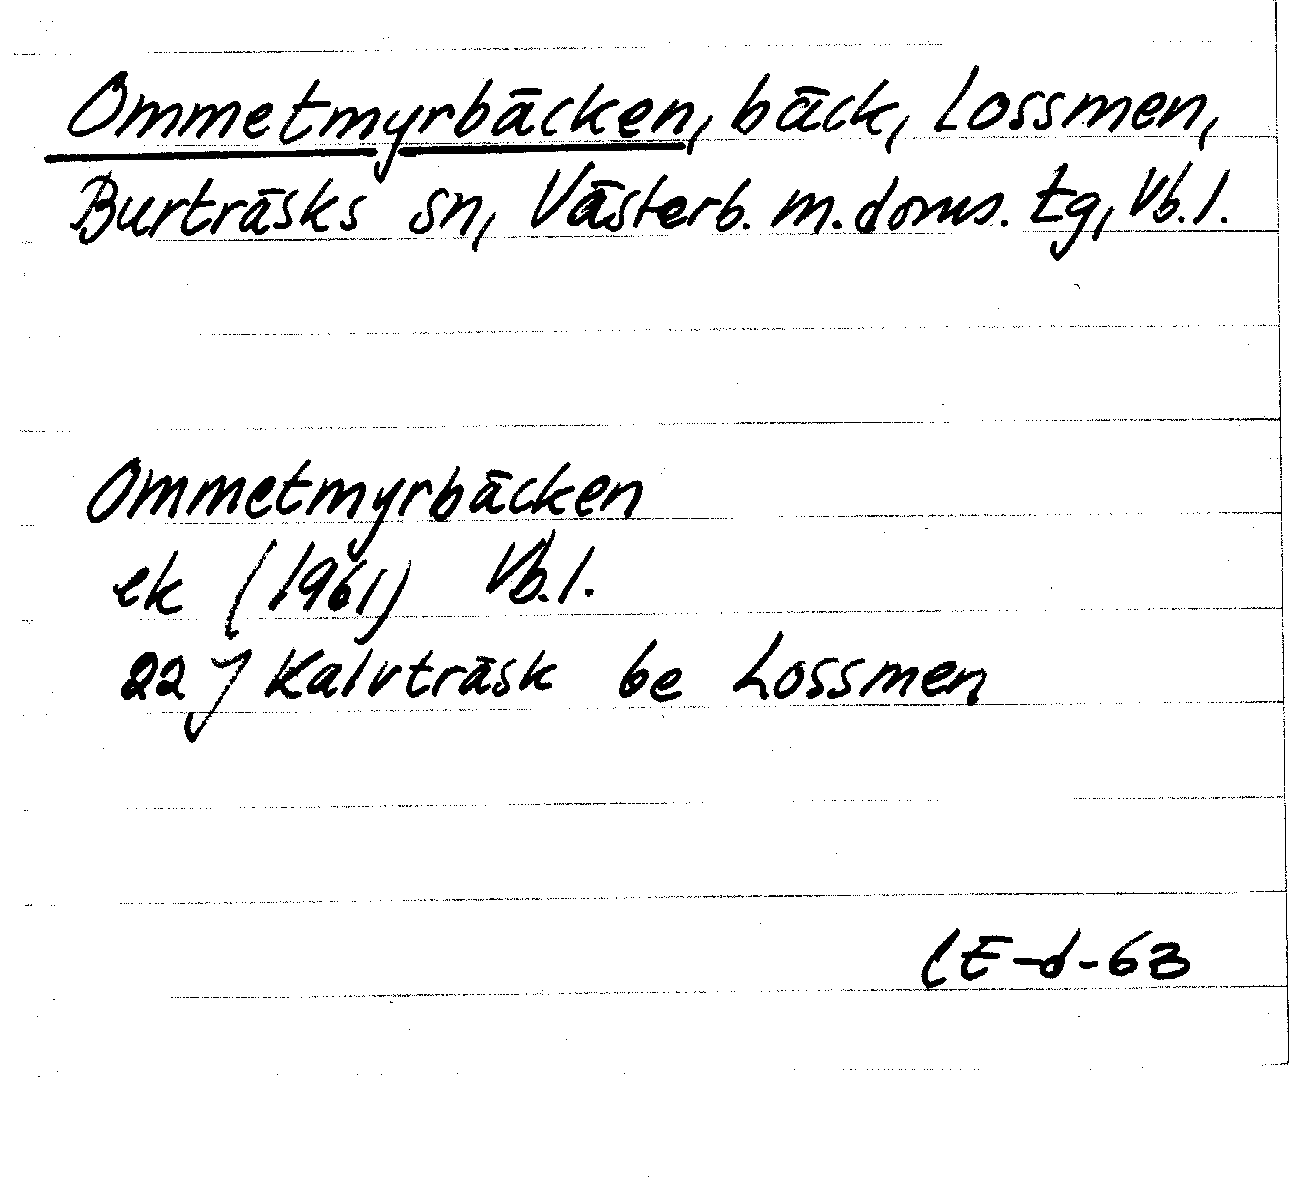 Ommetmyrbäcken, bäck, Lossmen,
Burträsks sn, Västerb. m. doms. tg, Vb. l.
Ommetmyrbäcken
ek (1961) Vb. l.
22 J Kalvträsk 6e Lossmen
CE-d-63